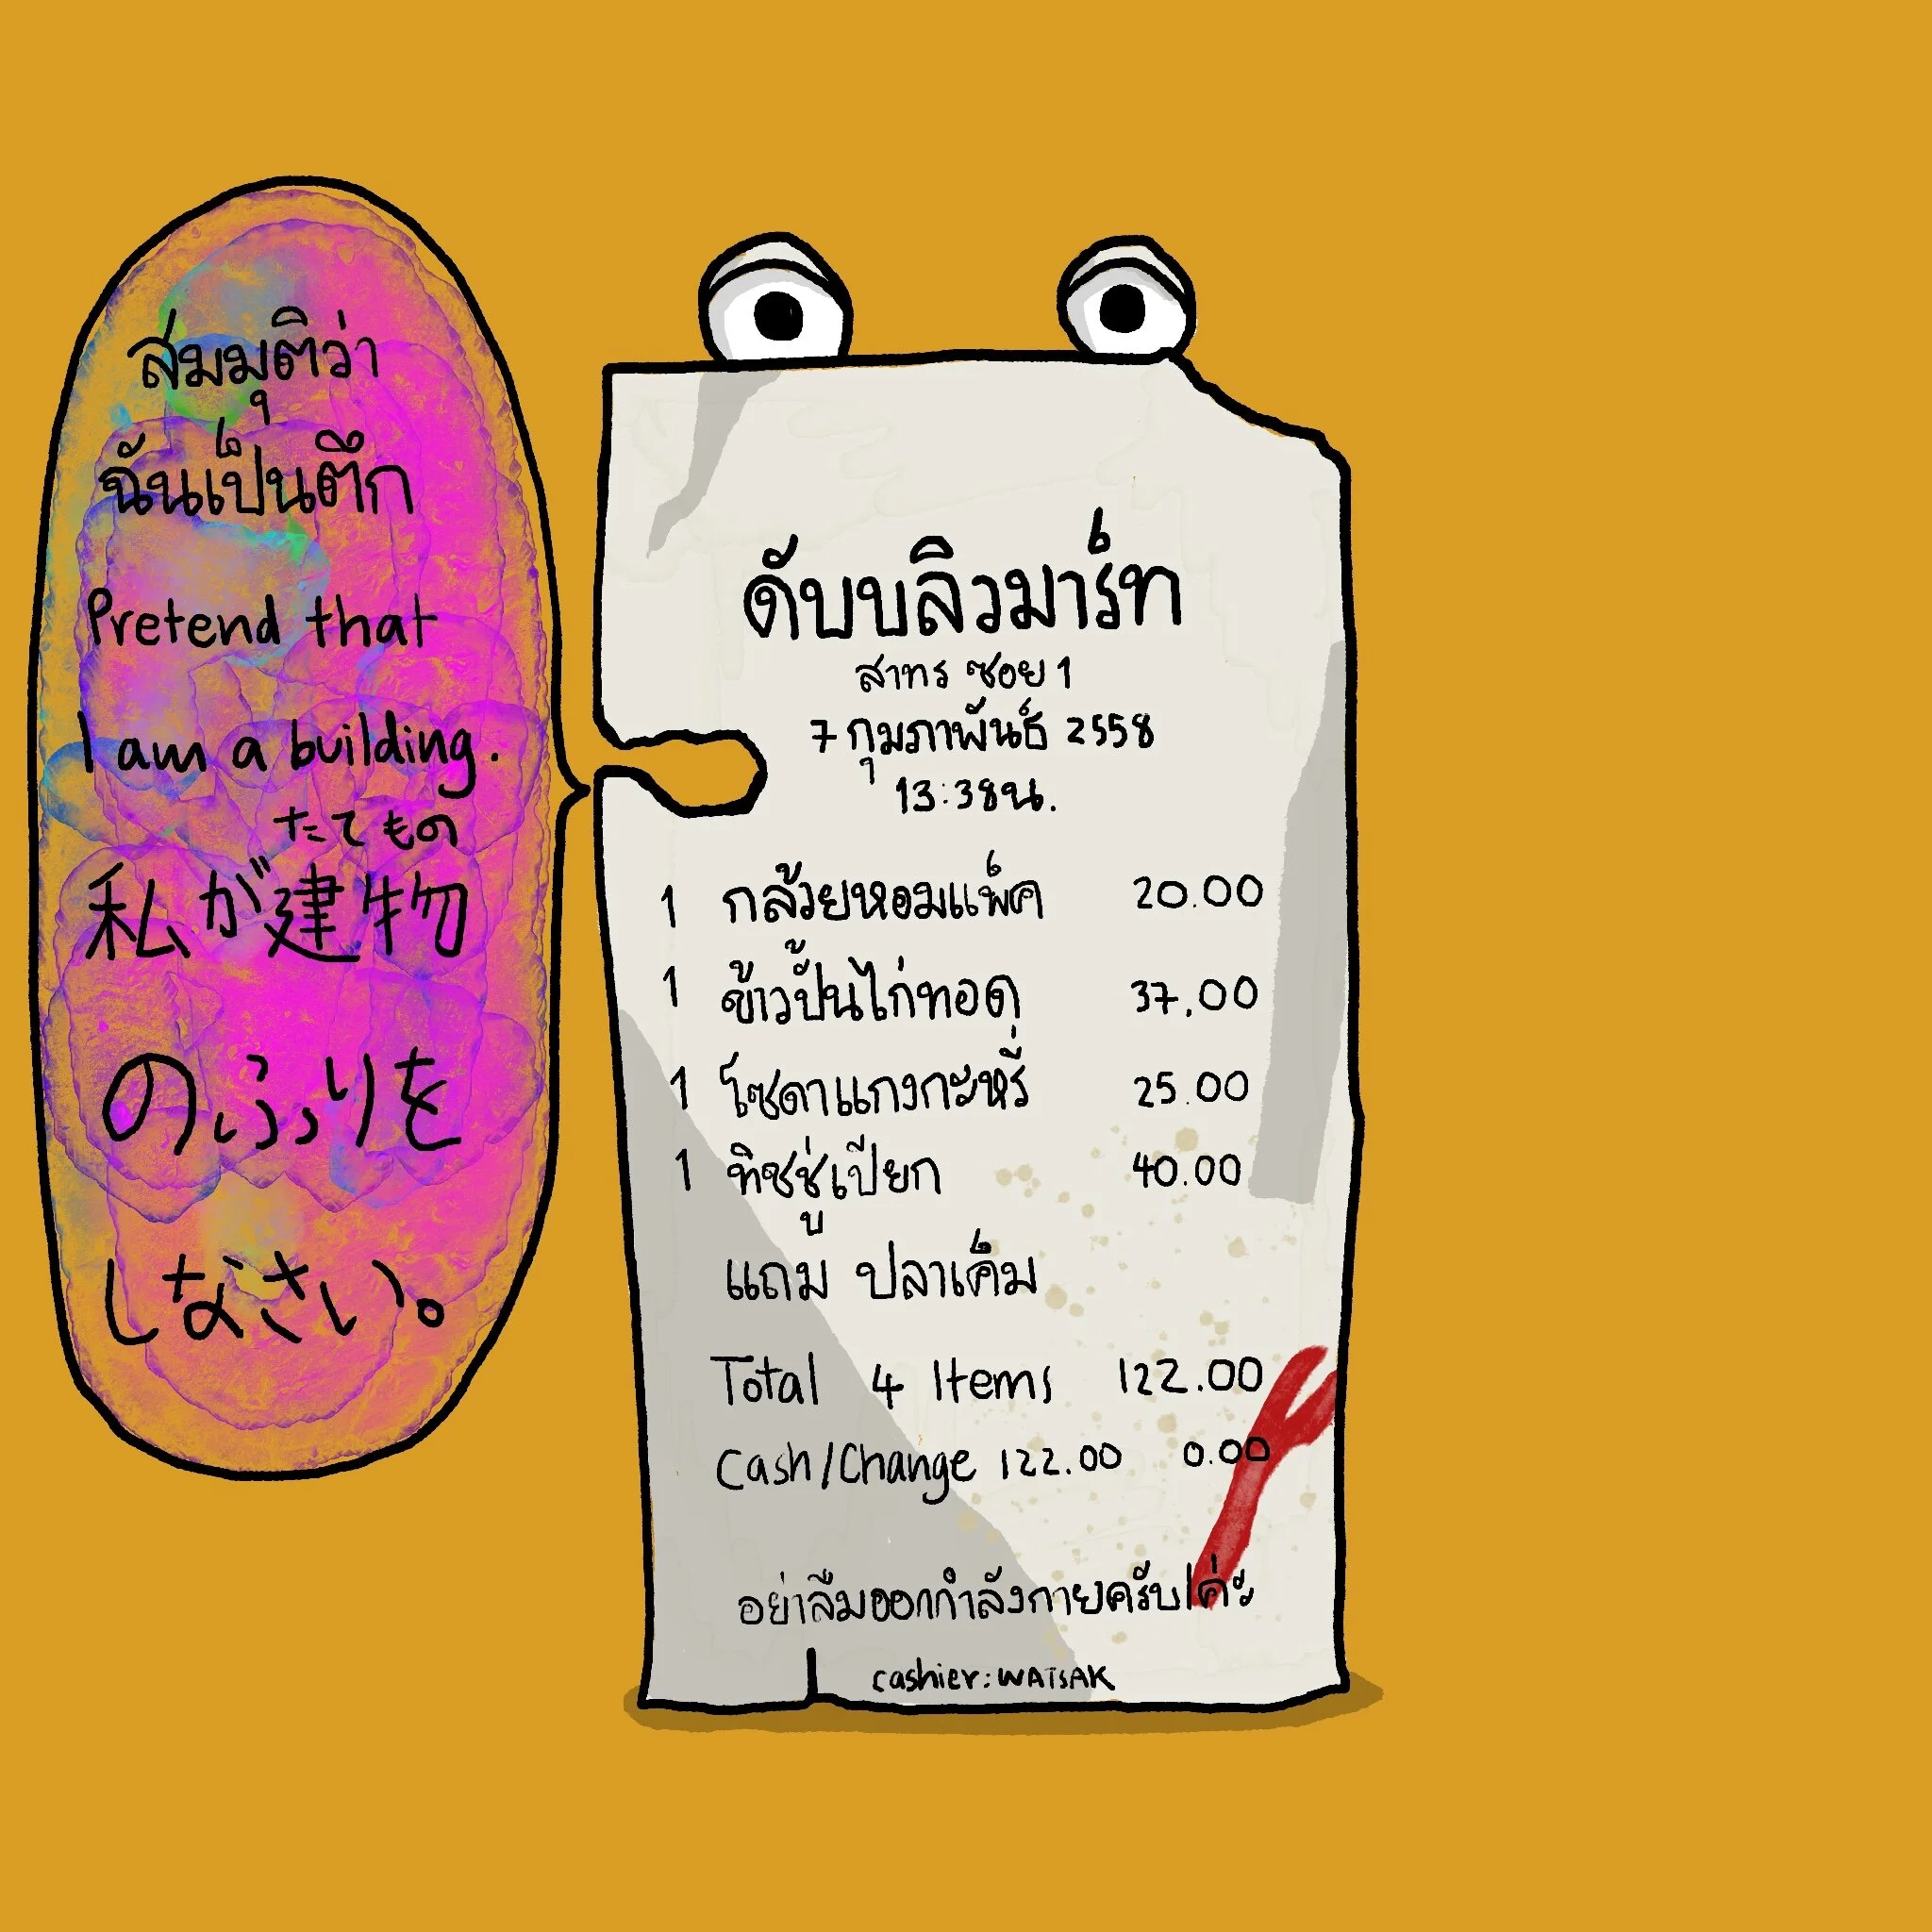 สมมุติว่า
ฉันเป็นตึก
Pretend that
I am a building.
たてもの
私が建物
のふりを
しなさい。
ดับบลิวมาร์ท
สาทร ซอย 1
7 กุมภาพันธ์ 2558
13:38น.
1 กล้วยหอมแพ็ค 20.00
1 ข้าวปั้นไก่ทอด 37.00
1 โซดาแกงกะหรี่ 25.00
1 ทิชชู่เปียก 40.00
แถม ปลาเค็ม
Total 4 Items 122.00
Cash/Change 122.00 0.00
อย่าลืมออกกำลังกายครับ/ค่ะ
cashier: WATSAK